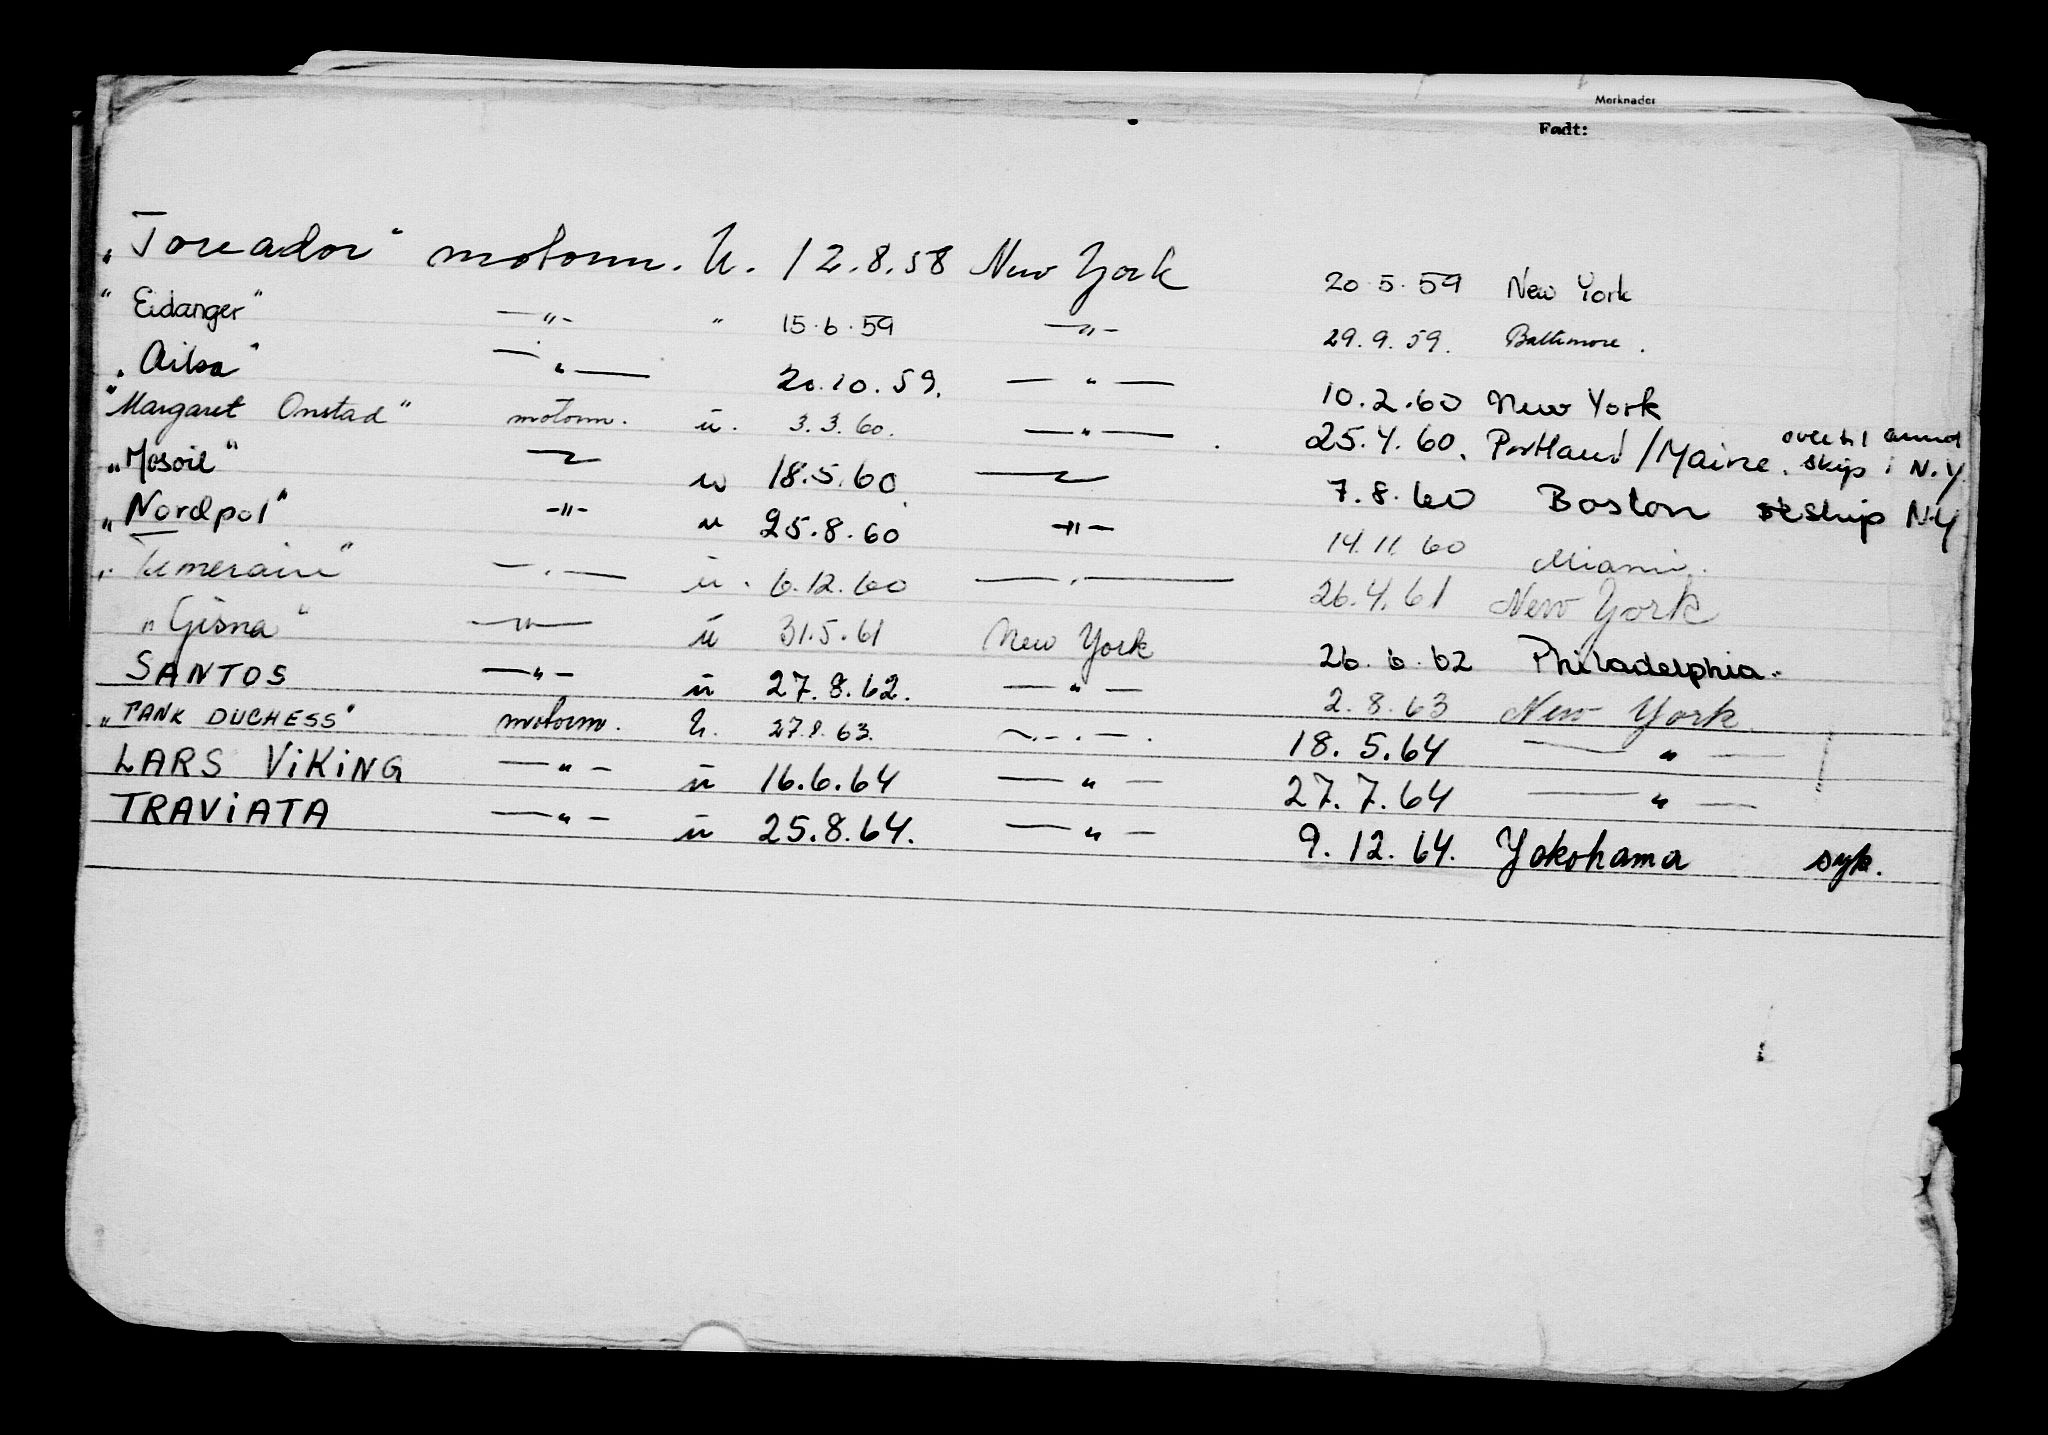 Merknader
Født:
"Toreador" motorm. u. 12.8.58 New York 20.5.59 New York
"Eidanger" —"— " 15.6.59 —"— 29.9.59. Baltimore.
"Ailsa" —"— 20.10.59. —"— 10.2.60 New York
"Margaret Onstad" motorm. u. 3.3.60. —"— 25.4.60. Portland/Maine. over til annet skip i N.Y.
"Mosoil" —"— u 18.5.60 —"— 7.8.60 Boston skip N.Y
"Nordpol" —"— u 25.8.60 —"— 14.11.60 Miami.
"Temeraire" —"— u. 6.12.60 —"— 26.4.61 New York
"Gisna" —"— u 31.5.61 New York 26.6.62 Philadelphia.
SANTOS —"— u 27.8.62. —"— 2.8.63 New York
"TANK DUCHESS" motorm. u. 27.8.63. —"— 18.5.64 —"—
LARS ViKiNG —"— u 16.6.64 —"— 27.7.64 —"—
TRAViATA —"— u 25.8.64. —"— 9.12.64. Yokohama syk.